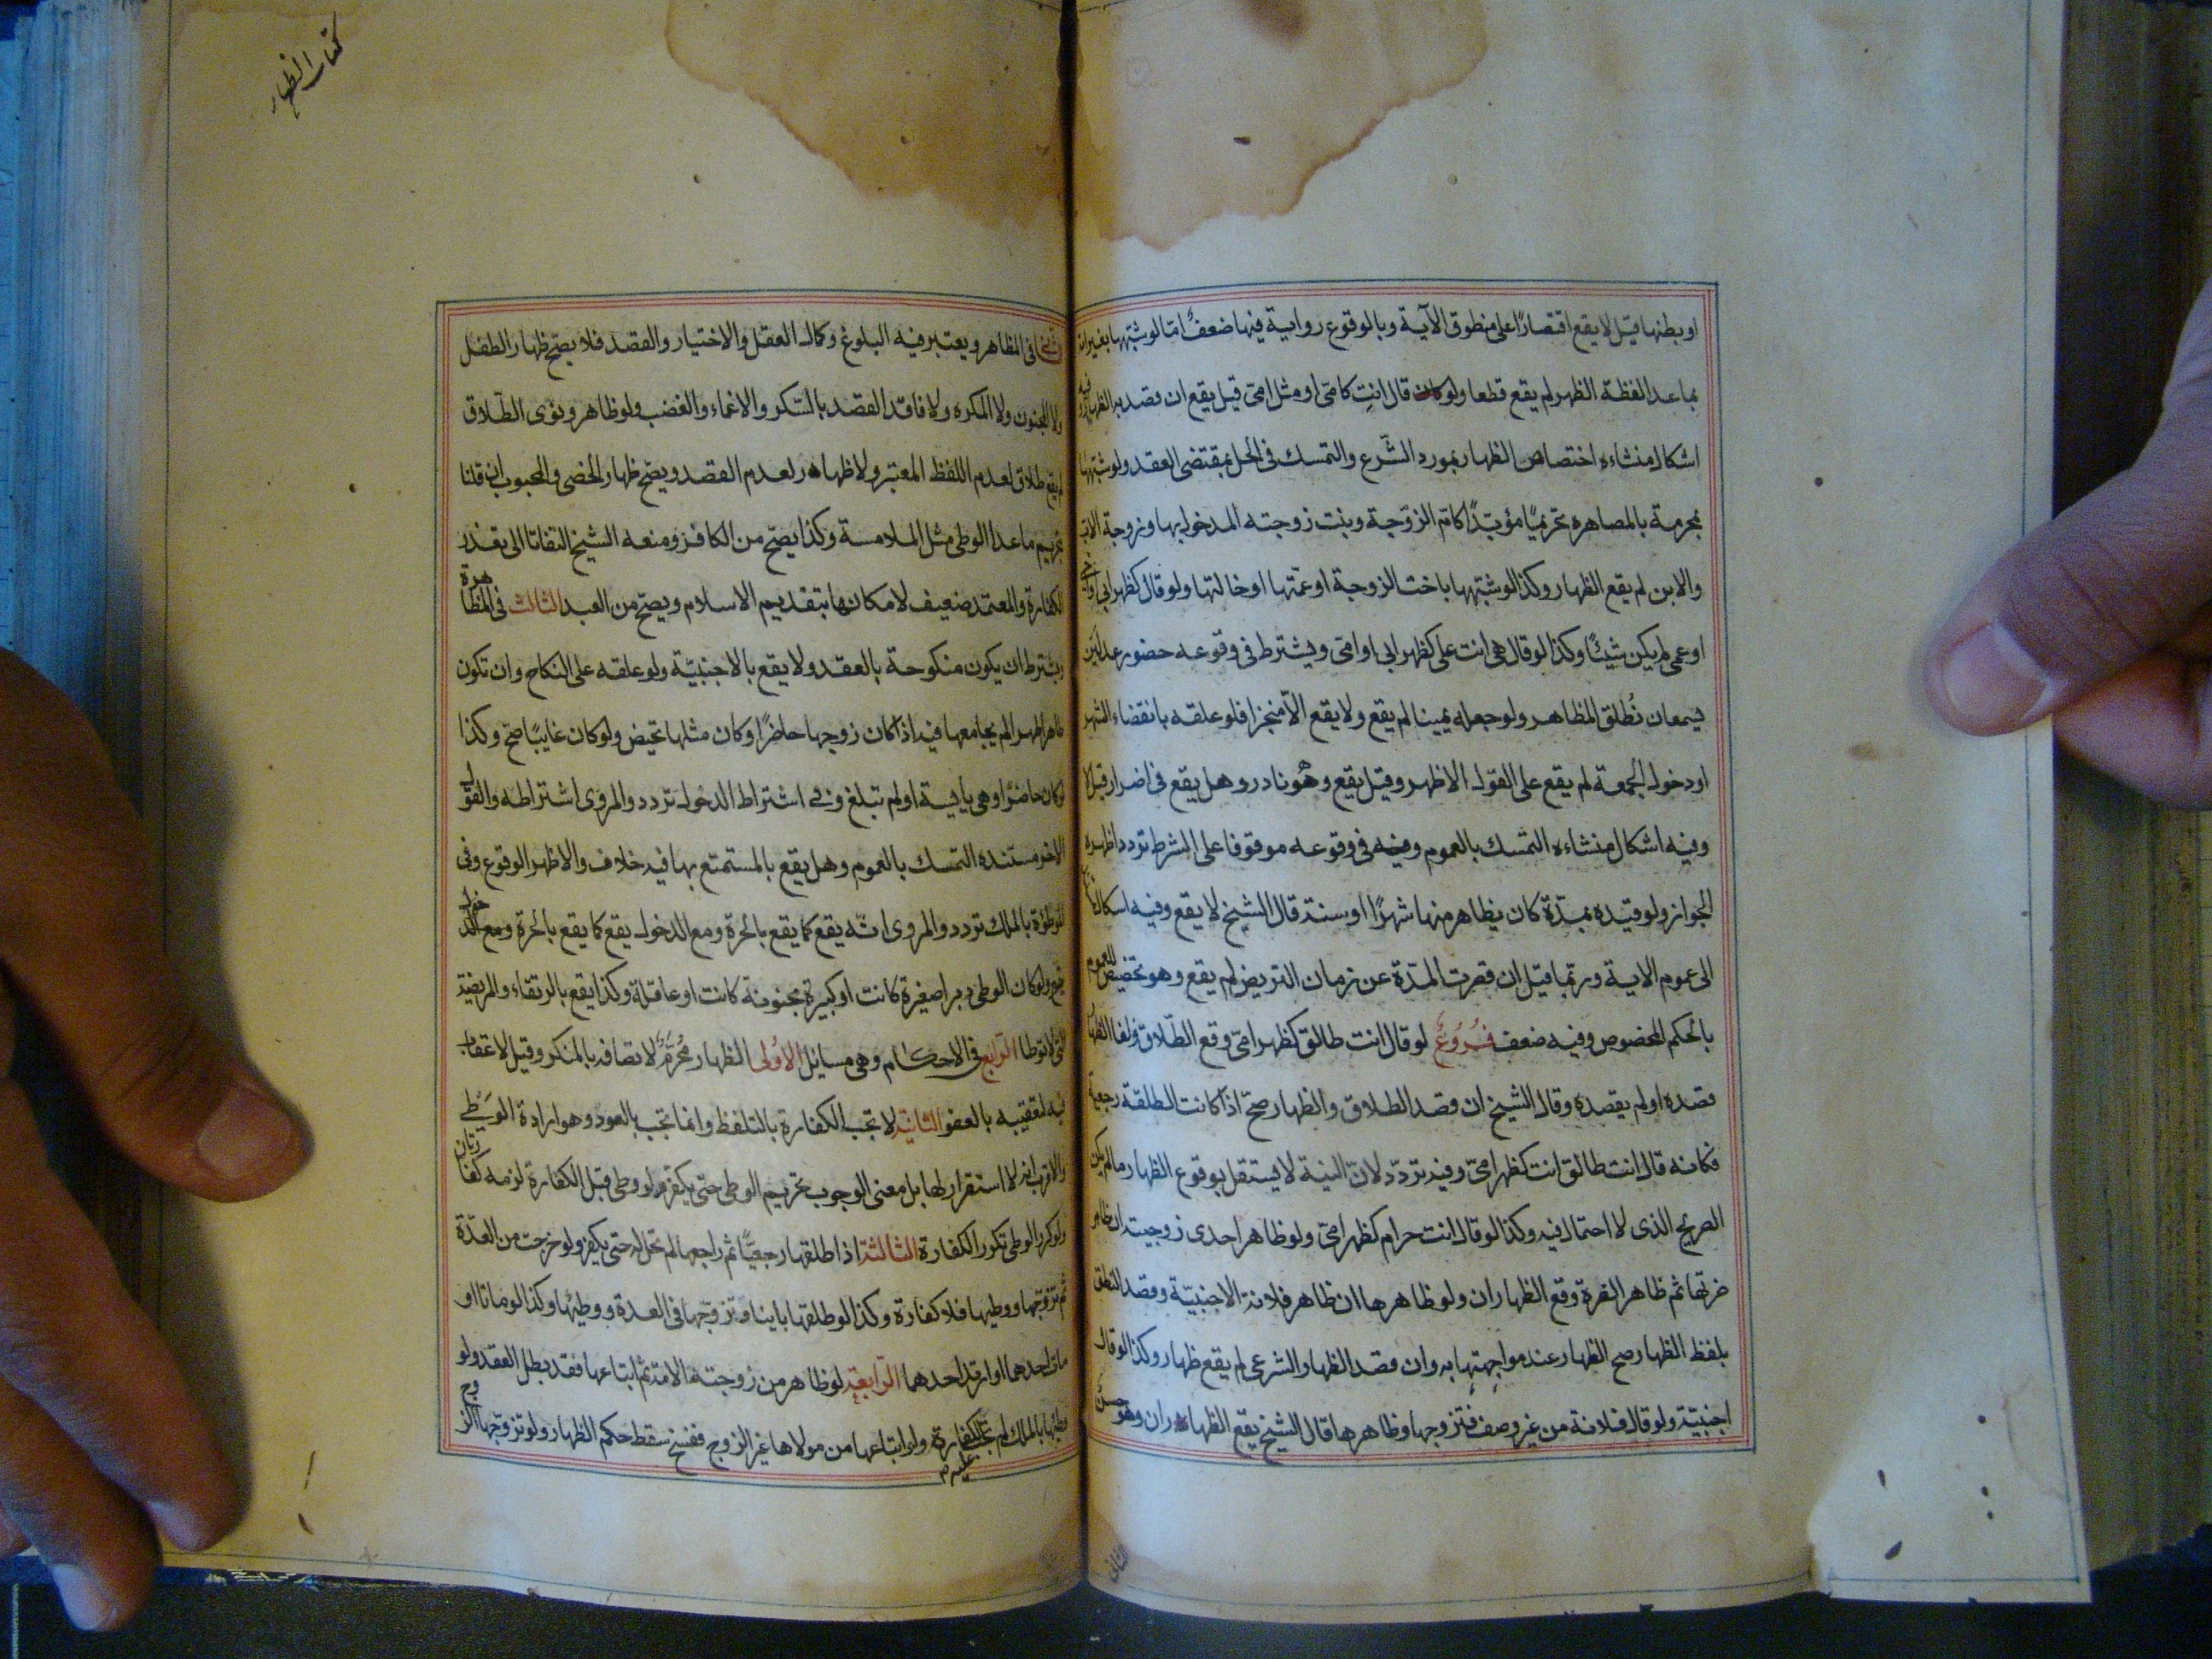 او بطنها قيل لا يقع اقتصارًا على منطوق الآية وبالوقوع رواية فيها ضعفٌ امّا لو شبّهها بغير امه
بما عدا لفظة الظهر لم يقع قطعا ولو قال انتِ كامّى او مثل امّى قيل يقع ان قصد به الظهار وفيه
اشكال منشاءه اختصاص الظهار بمورد الشّرع والتمسك فى الحل بمقتضى العقد ولو شبّهها
بمحرمة بالمصاهره تحريمًا مؤبّدًا كامّ الزوّجة وبنت زوجته المدخول بها وزوجة الاب
والابن لم يقع الظهار وكذا لو شبّهها باخت الزوجة او عمّتها او خالتها ولو قال كظهر ابى او اخى
او عمى لم يكن شيئًا وكذا لو قال هى انت على كظهر ابى او امّى ويشترط فى وقوعه حضور عدلين
يسمعان نُطلق المظاهر ولو جعله يمينا لم يقع ولا يقع الّا منجزا فلو علقه بانقضاء الشهر
او دخول الجمعة لم يقع على القول الاظهر وقيل يقع وهو نادر وهل يقع فى اضرار قيل لا
وفيه اشكال منشاءه التمسك بالعموم وفى وقوعه موقوفا على الشرط تردد اظهره
الجواز ولو قيّده بمدّة كان يظاهر منها شهرًا او سنة قال الشيخ لا يقع وفيه اشكال مستند
الى عموم الاية وربّما قيل ان قصرت المدّة عن زمان التربص لم يقع وهو تخصيص للعموم
بالحكم المخصوص وفيه ضعف فُرُوعٌ لو قال انت طالق كظهر امّى وقع الطّلاق ولغا الظهار
قصده او لم يقصده وقال الشيخ ان قصد الطلاق والظهار صحّ اذا كانت الطلقة رجعية
فكانه قال انت طالق انت كظهر امّى وفيه تردّد لانّ النية لا يستقل بوقوع الظهار ما لم يكن
الصريح الذى لا احتمال فيه وكذا لو قال انت حرام كظهر امّى ولو ظاهر احدى زوجيته ان ظاهر
ضرتها ثم ظاهر الضرة وقع الظهاران ولو ظاهرها ان ظاهر فلانة الاجنبيّة وقصد النطق
بلفظ الظهار صح الظهار عند مواجهتها به وان قصد الظهار الشرعى لم يقع ظهار وكذا لو قال
اجنبيّة ولو قال فلانة من غير وصف فتزوجها وظاهرها قال الشيخ يقع الظهاران وهو حسن
الثانى
كتاب الظهار
الثانى فى المظاهر ويعتبر فيه البلوغ وكمال العقل والاختيار والقصد فلا يصحّ ظهار الطفل
ولا المجنون ولا المكره ولا فاقد القصد بالسّكر والاغماء والغضب ولو ظاهر ونوى الطّلاق
لم يقع طلاق لعدم اللفظ المعتبر ولا ظهار لعدم القصد ويصحّ ظهار الخصى والمجبوب ان قلنا
بتحريم ما عدا الوطى مثل الملامسة وكذا يصحّ من الكافر ومنعه الشيخ التفاتا الى تعذر
الكفارة والمعتمد ضعيف لامكانها بتقديم الاسلام ويصحّ من العبد الثالث فى المظاهرة
ويشترط ان يكون منكوحة بالعقد ولا يقع بالاجنبيّة ولو علقه على النكاح وان تكون
طاهرا طهرا لم يجامعها فيه اذا كان زوجها حاضرًا وكان مثلها تحيض ولو كان غايبًا صحّ وكذا
لو كان حاضرًا وهى يايسة او لم تبلغ وفى اشتراط الدخول تردد والمروى اشتراطه والقول
الاخر مستنده التمسك بالعموم وهل يقع بالمستمتع بها فيه خلاف والاظهر الوقوع وفى
الموطؤة بالملك تردد والمروى انّه يقع كما يقع بالحرة ومع الدخول يقع كما يقع بالحرة ومع الدخول
يقع ولو كان الوطى دبرا صغيرة كانت او كبيرة مجنونة كانت او عاقلة وكذا يقع بالرتقاء والمريضة
التى لا توطا الرّابع فى الاحكام وهى مسايل الاُولى الظهار مُحَرَّمٌ لاتصافه بالمنكر وقيل لا عقاب
فيه لتعقيبه بالعفو الثانية لا تجب الكفارة بالتلفظ وانما تجب بالعود وهو ارادة الوطى
والاقرب انه لا استقرار لها بل معنى الوجوب تحريم الوطى حتى يكفر ولو وطى قبل الكفارة لزمه كفارتان
ولو كرر الوطى تكرر الكفارة الثالثة اذا طلقها رجعيًّا ثم راجعها لم تحل له حتى يكفر ولو خرجت من العدّة
ثم تزوّجها ووطيها فلا كفارة وكذا لو طلقها باينا وتزوّجها فى العدة ووطيها وكذا لو ماتا او
مات احدهما او ارتد احدهما الرّابعة لو ظاهر من زوجته الامة ثم ابتاعها فقد بطل العقد ولو
وطيها بالملك لم تجب عليه الكفارة ولو ابتاعها من مولاها غير الزوج ففسخ سقط حكم الظهار ولو تزوّجها الزوج